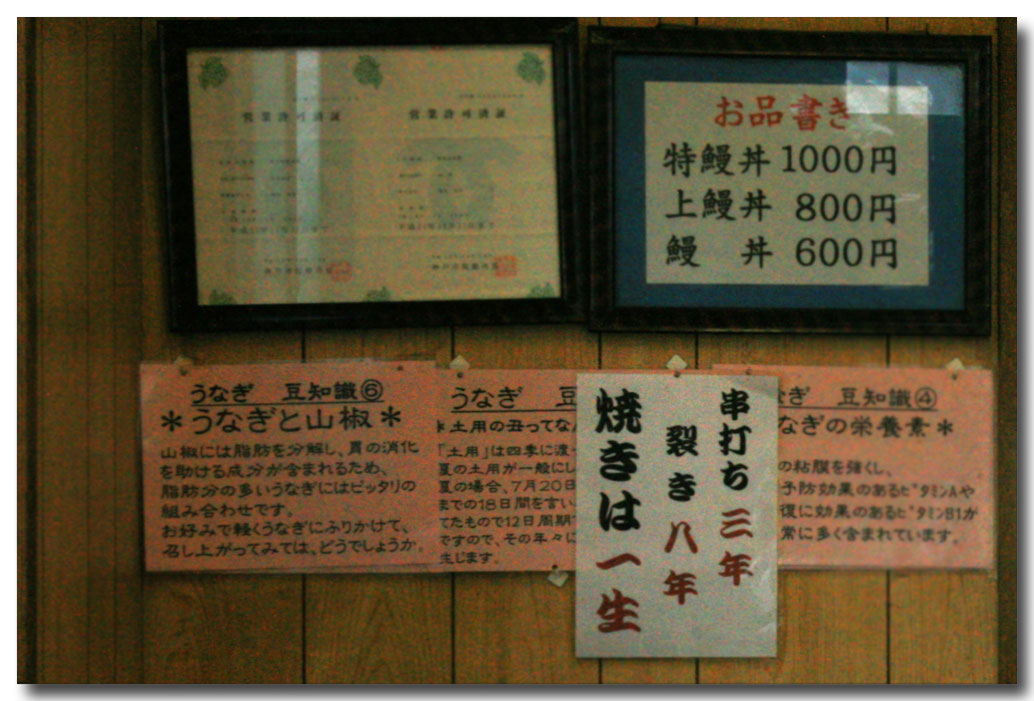 営業許可済証
営業許可済証
お品書き
特鰻丼 1000円
上鰻丼 800円
鰻 丼 600円
うなぎ 豆知識⑥
＊うなぎと山椒＊
山椒には脂肪を分解し、胃の消化
を助ける成分が含まれるため、
脂肪分の多いうなぎにはピッタリの
組み合わせです。
お好みで軽くうなぎにふりかけて、
召し上がってみては、どうでしょうか。
うなぎ 豆
＊土用の丑ってな
「土用」は四季に渡
夏の土用が一般にし
夏の場合、7月20日
までの18日間を言い
てたもので12日周期
ですので、その年々に
生じます。
串打ち三年
裂き八年
焼きは一生
ぎ 豆知識④
なぎの栄養素＊
の粘膜を強くし、
予防効果のあるビタミンAや
復に効果のあるビタミンB1が
常に多く含まれています。